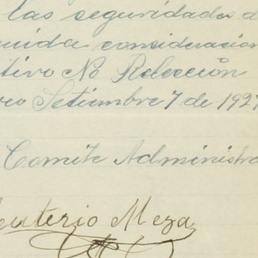 las seguridades d
uida consideracion
tivo No Relección
ro Setiembre 7 de 192
Comite Administra
euterio Meza